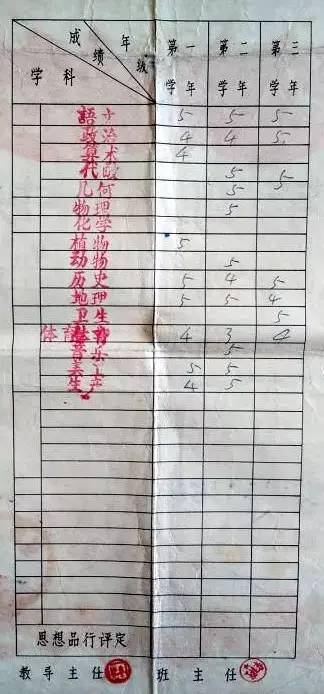 成绩 年级 学科 第一学年 第二学年 第三学年
語 5 5 5
政治 4 4 5
算术 4
代 5 5
几何 5
物理 5
化学
植物 5
动物 5
历史 5 4 5
地理 5 5 4
卫生 5
体育 4 3
音乐 5
美 5 5
生产 4 5
思想品行评定
教导主任 班主任